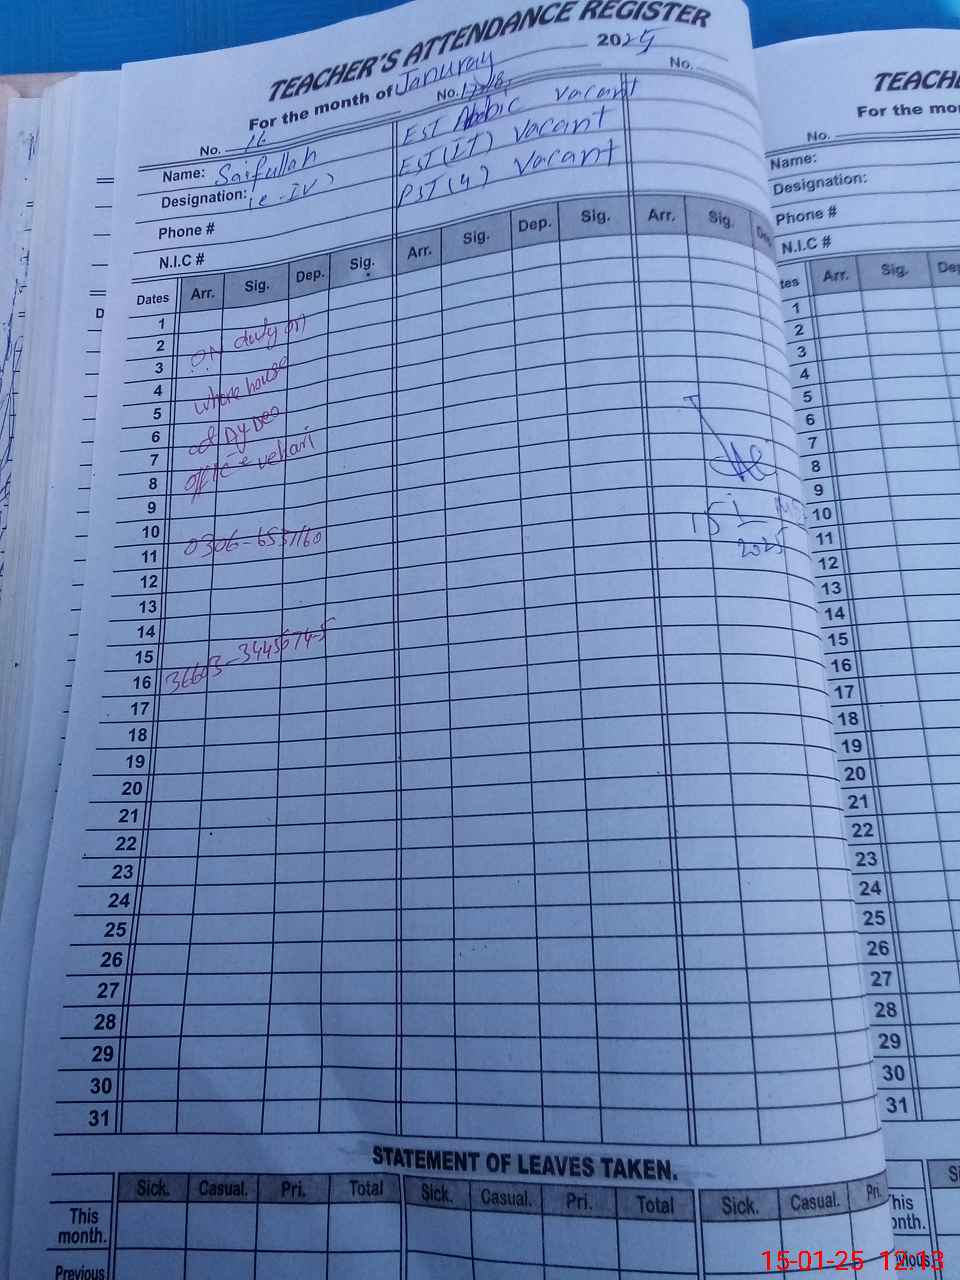 TEACHER'S ATTENDANCE REGISTER
For the month of Januray 2025
No. 16
No. 17,18,
No.
Name: Saifullah
EST Arabic vacant
Designation: (e-IV)
EST(IT) Vacant
Phone #
PST(4) Vacant
N.I.C #
Dates Arr. Sig. Dep. Sig. Arr. Sig. Dep. Sig. Arr. Sig. Dep
1
2
3
4
5
6
7
8
9
10
11
12
13
14
15
16
17
18
19
20
21
22
23
24
25
26
27
28
29
30
31
ON duty on
where house
of Dy DEO
office vehari
0306-6537160
36603-3445674-5
15
1
2025
STATEMENT OF LEAVES TAKEN.
Sick. Casual. Pri. Total Sick. Casual. Pri. Total Sick. Casual. Pri.
This month.
Previous
TEACHE
For the mon
No.
Name:
Designation:
Phone #
N.I.C #
tes Arr. Sig. Dep
1
2
3
4
5
6
7
8
9
10
11
12
13
14
15
16
17
18
19
20
21
22
23
24
25
26
27
28
29
30
31
Si
This
onth.
vious
15-01-25 12:13